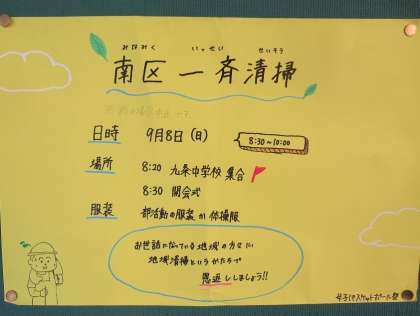 みなみく いっせい せいそう
南区 一斉清掃
日時 9月8日(日) 8:30~10:00
場所 8:20 九条中学校 集合
8:30 開会式
服装 部活動の服装か体操服
お世話になっている地域の方々に
地域清掃というかたちで
恩返ししましょう!!
女子バスケットボール部